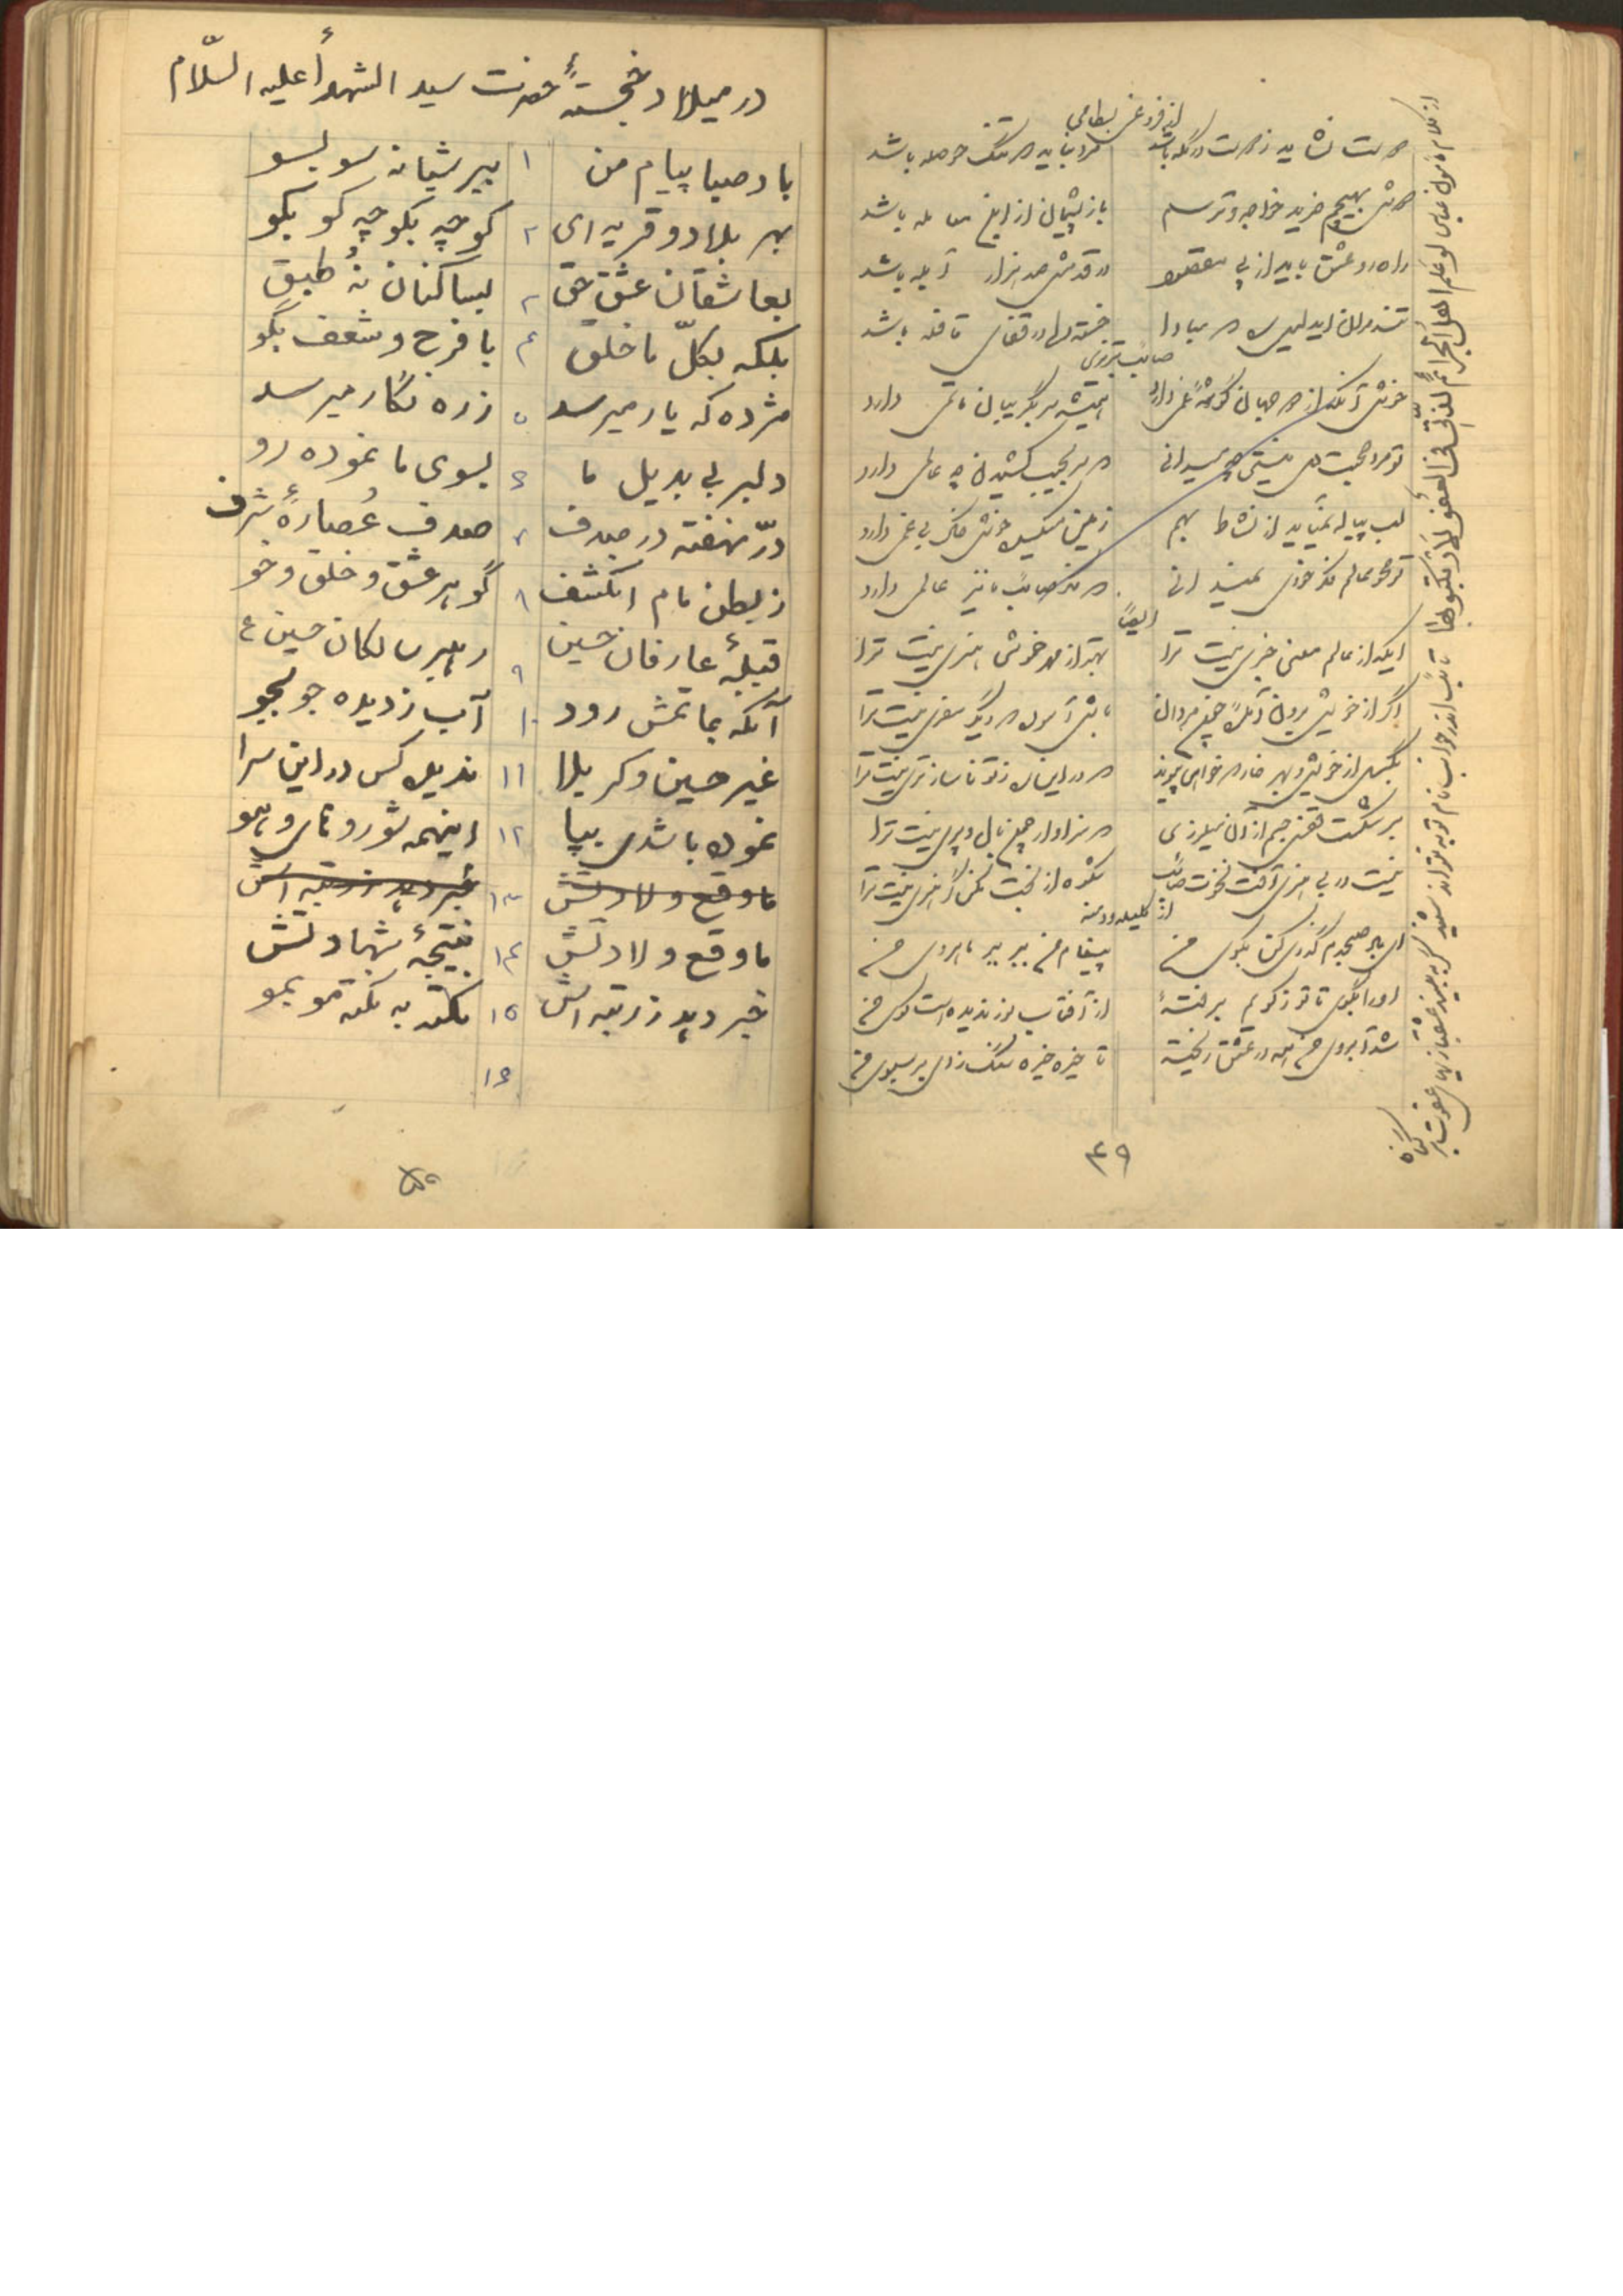 از فروغی بسطامی
دوست نشاید ز دوست در گله باشد مرد نباید که تنگ حوصله باشد
دوش بهیچم خرید خواجه و ترسم باز پشیمان از این معامله باشد
راهرو عشق باید از پی مقصود در قدمش صد هزار آبله باشد
تند مران ای دلیل ره که مبادا خسته دلی در قفای قافله باشد
صائب تبریزی
خوش آنکه از دو جهان گوشهٔ غمی دارد همیشه سر بگریبان ماتمی دارد
تو مرد صحبت دل نیستی چه میدانی که سر بجیب کشیدن چه عالمی دارد
لب پیاله نمیآید از نشاط بهم زمین میکده خوش خاک بی غمی دارد
تو محو عالم فکر خودی نمیدانی که فکر صائب ما نیز عالمی دارد
ایضاً
ایکه از عالم معنی خبری نیست ترا بهتر از مهر خموشی هنری نیست ترا
اگر از خویش برون آمدهٔ چون مردان باش آسوده که دیگر سفری نیست ترا
بگسل از خویش و بهر خار که خواهی پیوند که در این ره ز تو ناسازتری نیست ترا
بر شکست قفس جسم از آن میلرزی که سزاوار چمن بال و پری نیست ترا
نیست در بی هنری آفت نخوت صائب شکوه از بخت مکن گر هنری نیست ترا
از کلیله و دمنه
ای باد صبحدم گذری کن بکوی من پیغام من ببر بر ماهروی من
او را بگوی تا تو ز کویم برفتهٔ از آفتاب نور ندیده است کوی من
شد آبروی من همه در عشق ریخته تا خیره خیره سنگ زدی بر سبوی من
۴۹
در میلاد خجستهٔ حضرت سید الشهدأ علیه السلّام
باد صبا پیام من ۱ ببر شبانه سو بسو
بهر بلاد و قریه ای ۲ کوچه بکوچه کو بکو
بعاشقان عشق حق ۳ بساکنان نُه طبق
بلکه بکلّ ما خلق ۴ با فرح و شعف بگو
مژده که یار میرسد ۵ زره نگار میرسد
دلبر بی بدیل ما ۶ بسوی ما نموده رو
درّ نهفته در صدف ۷ صدف عُصارهٔ شرف
ز بطن مام انکشف ۸ گوهر عشق و خلق و خو
قبلهٔ عارفان حسین ۹ رهبر سالکان حسین ع
آنکه بماتمش رود ۱۰ آب ز دیده جو بجو
غیر حسین و کربلا ۱۱ ندیده کس در این سرا
نموده باشدی بپا ۱۲ اینهمه شور و های و هو
ما وقع ولادتش ۱۳ خبر دهد ز رتبه اش
ما وقع ولادتش ۱۴ نتیجهٔ شهادتش
خبر دهد ز رتبه اش ۱۵ نکته به نکته مو بمو
۱۶
۵۰